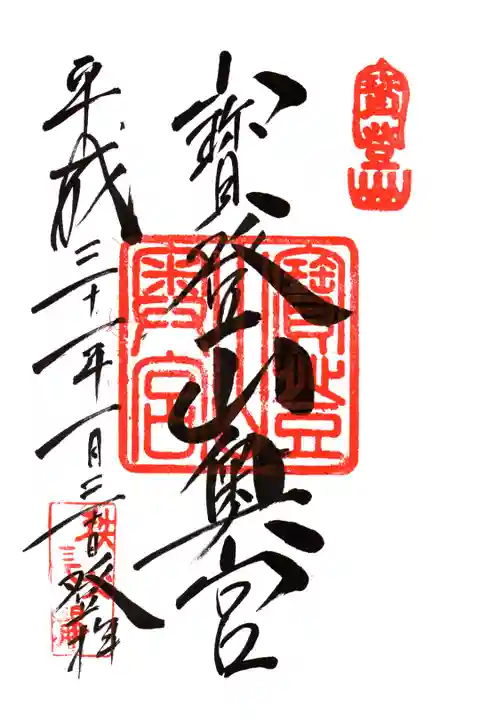 寶登山
寶登山奥宮
寶登山奥宮
平成三十一年一月二日登拝